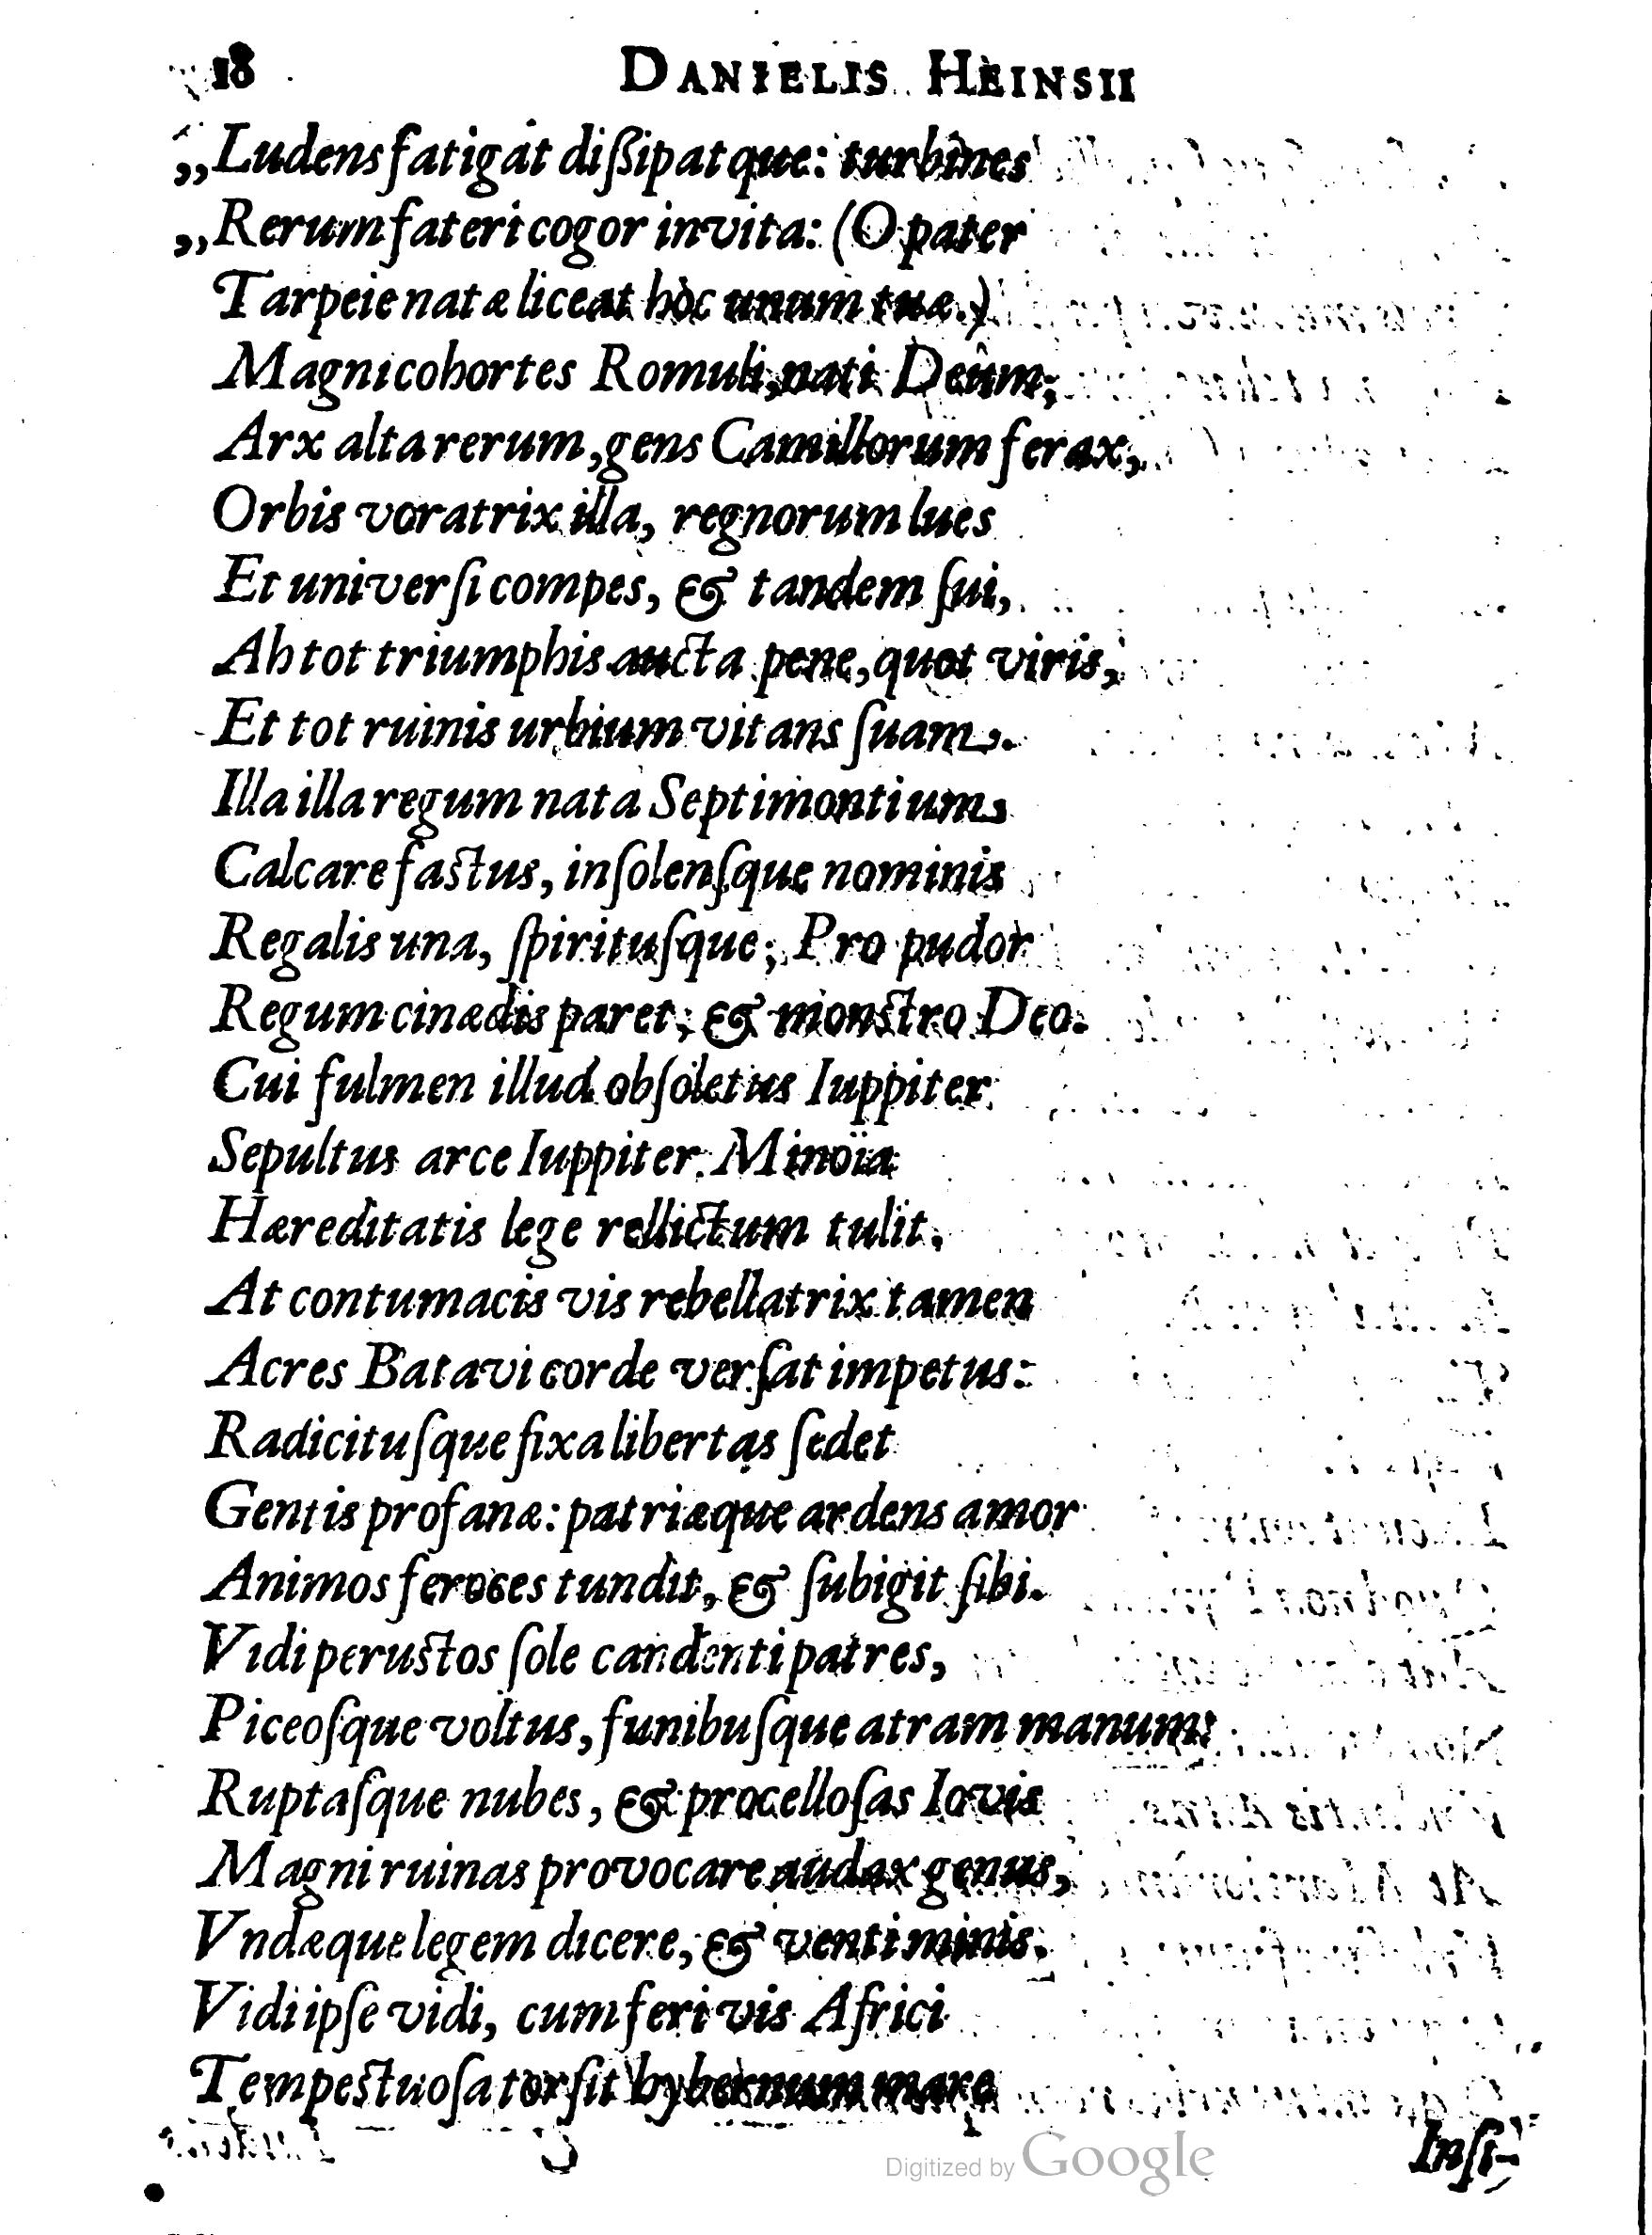 18 DANIELIS HEINSII
„Ludens fatigat dißipatque: turbines
„Rerum fateri cogor invita: (O pater
Tarpeie natæ liceat hòc unam tuæ.)
Magni cohortes Romuli, nati Deûm;
Arx alta rerum, gens Camillorum ferax,
Orbis voratrix illa, regnorum lues
Et universi compes, & tandem sui,
Ah tot triumphis aucta pene, quot viris,
Et tot ruinis urbium vitans suam.
Illa illa regum nata Septimontium
Calcare fastus, insolensque nominis
Regalis una, spiritusque; Pro pudor
Regum cinædis paret; & monstro Deo.
Cui fulmen illud obsoletus Iuppiter
Sepultus arce Iuppiter Minoïa
Hæreditatis lege rellictum tulit.
At contumacis vis rebellatrix tamen
Acres Batavi corde versat impetus:
Radicitusque fixa libertas sedet
Gentis profanæ: patriæque ardens amor
Animos feroces tundit, & subigit sibi.
Vidi perustos sole candenti patres,
Piceosque voltus, funibusque atram manum:
Ruptasque nubes, & procellosas Iovis
Magni ruinas provocare audax genus,
Vndæque legem dicere, & venti minis.
Vidi ipse vidi, cum feri vis Africi
Tempestuosa torsit hybernum mare
Insi-
Digitized by Google